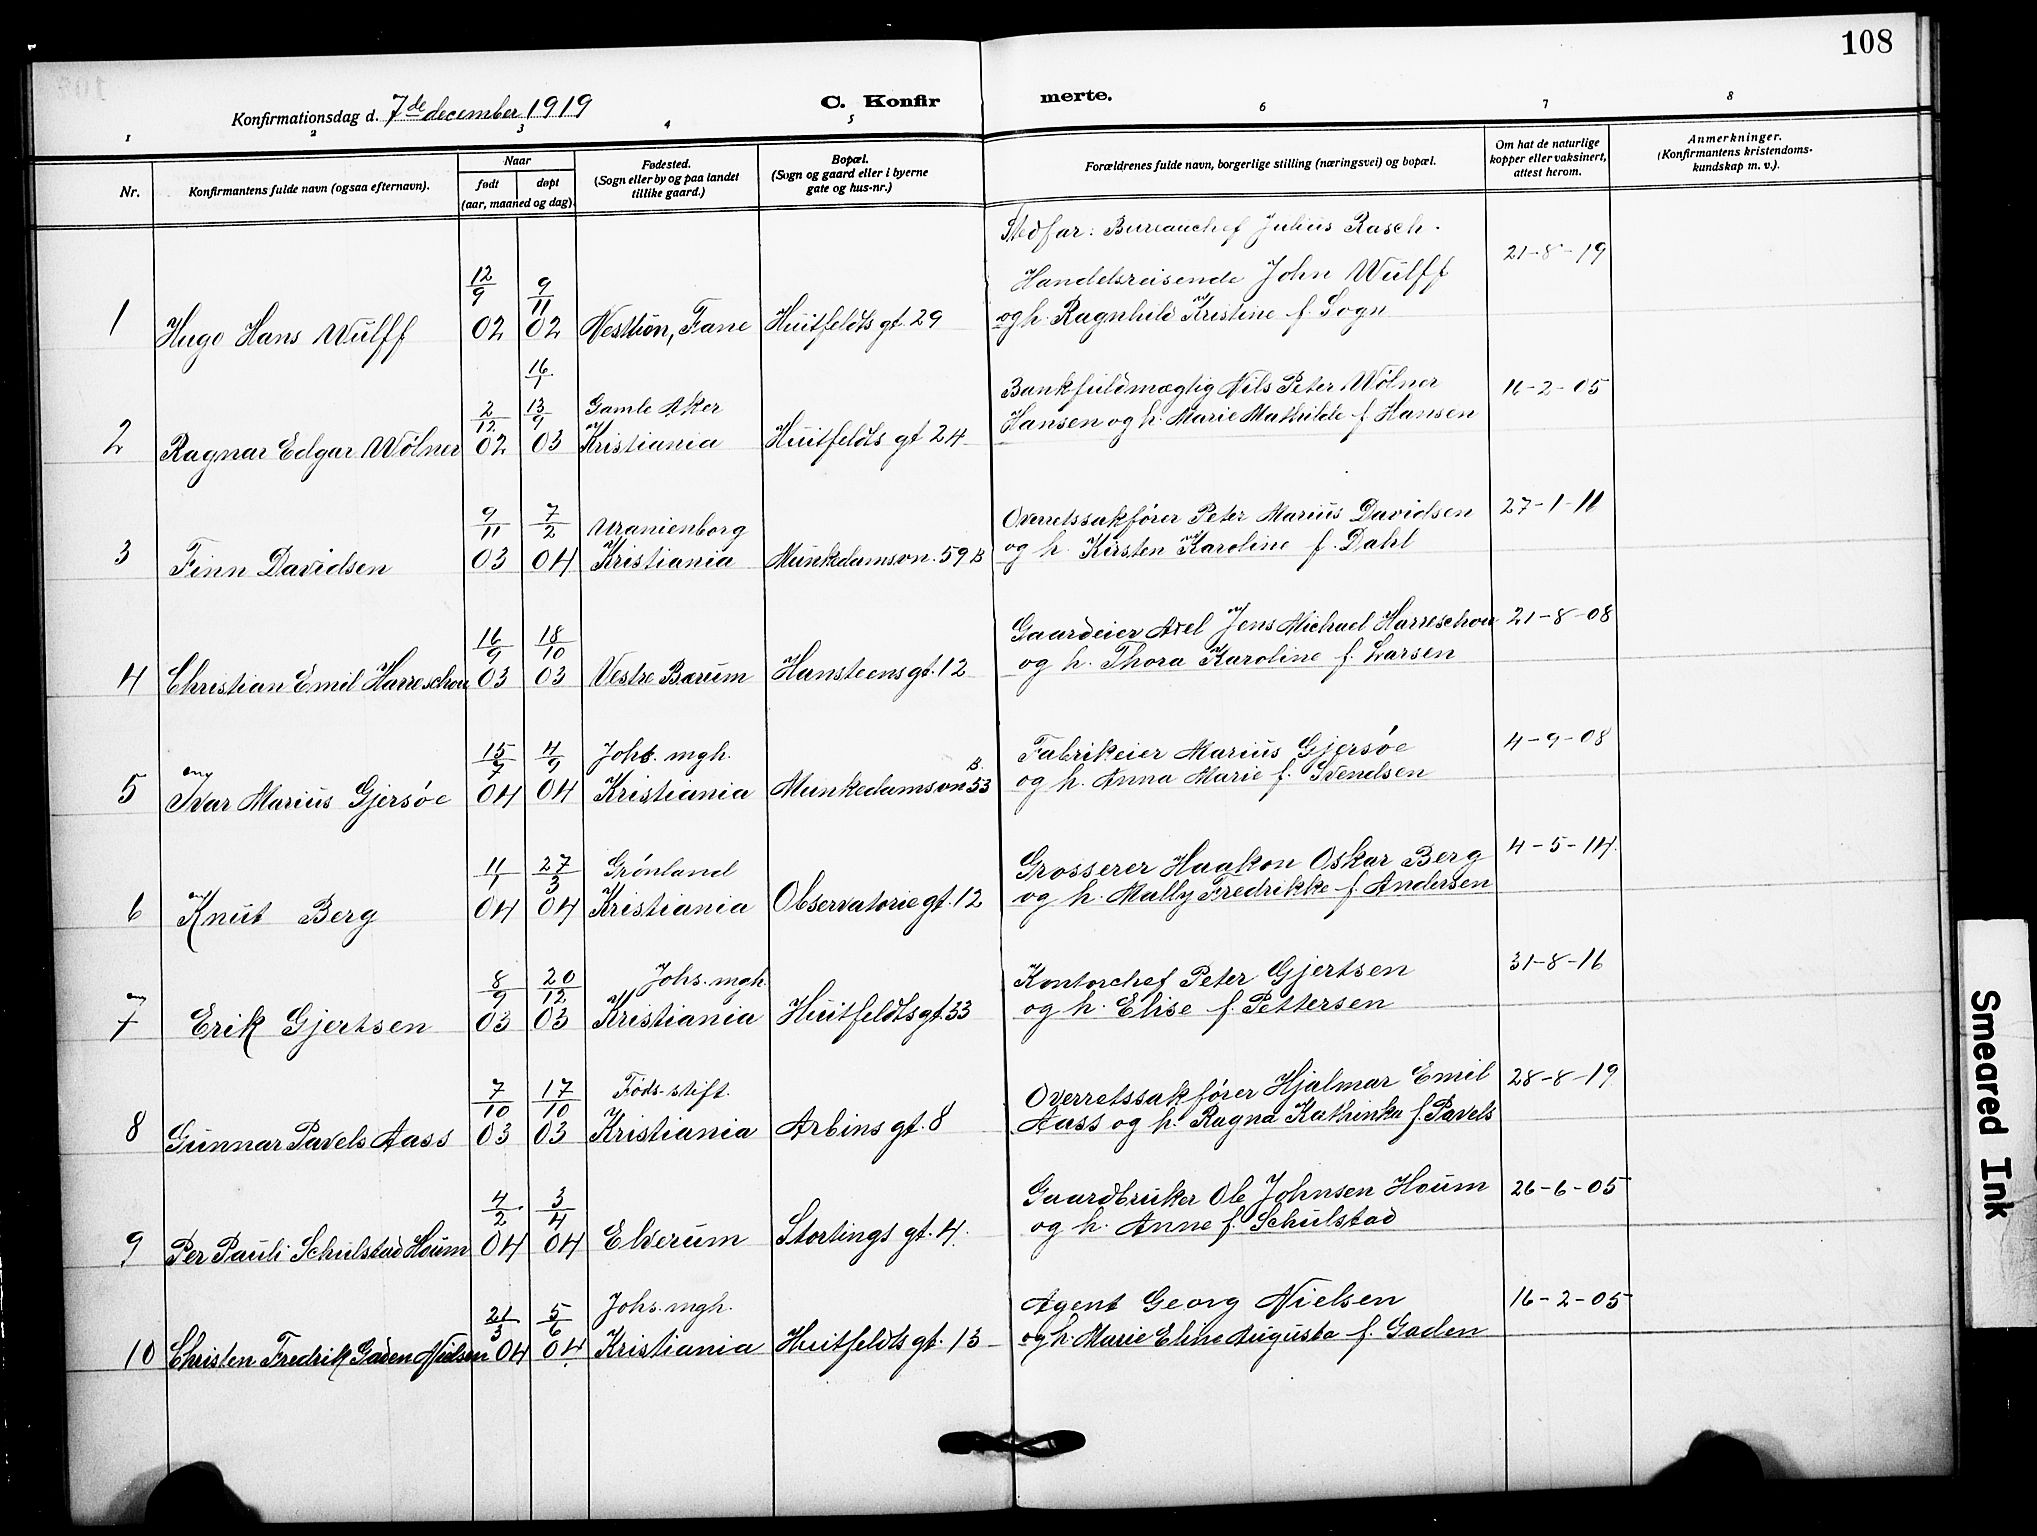 108
Konfirmationsdag d. 7de december 1919
C. Konfir
merte.
1 2 3 4 5 6 7 8
Nr.
Konfirmantens fulde navn (ogsaa efternavn).
Naar
født døpt
(aar, maaned og dag).
Fødested.
(Sogn eller by og paa landet
tillike gaard.)
Bopæl.
(Sogn og gaard eller i byerne
gate og hus-nr.)
Forældrenes fulde navn, borgerlige stilling (næringsvei) og bopæl.
Om hat de naturlige
kopper eller vaksinert,
attest herom.
Anmerkninger.
(Konfirmantens kristendoms-
kundskap m. v.).
Stedfar: Bureauchef Julius Rasch.
12/9 9/11 Handelsreisende John Wulff 21-8-19
1 Hugo Hans Wulff 02 02 Nesttun, Fane Huitfeldts gt. 29 og h. Ragnhild Kristine f. Sogn
16/1
2/12 13/9 Gamle Aker Bankfuldmægtig Nils Peter Wølner 16-2-05
2 Ragnar Edgar Wølner 02 03 Kristiania Huitfeldts gt 24 Hansen og h. Marie Mathilde f. Hansen
9/11 7/2 Uranienborg Overretssakfører Peter Marius Davidsen 27-1-11
3 Finn Davidsen 03 04 Kristiania Munkedamsvn. 59 B og h. Kirsten Karoline f. Dahl
16/9 18/10 Gaardeier Axel Jens Michael Harreschou 21-8-08
4 Christian Emil Harreschou 03 03 Vestre Bærum Hansteens gt. 12 og h. Thora Karoline f. Larsen
15/7 4/9 Johs. mgh. Fabrikeier Marius Gjersøe 4-9-08
5 Ivar Marius Gjersøe 04 04 Kristiania Munkedamsvn 53 B. og h. Anna Marie f. Svendsen
11/1 27/3 Grønland Grosserer Haakon Oskar Berg 4-5-14.
6 Knut Berg 04 04 Kristiania Observatorie gt. 12 og h. Mally Fredrikke f. Andersen
8/9 20/12 Johs. mgh. Kontorchef Peter Gjertsen 31-8-16
7 Erik Gjertsen 03 03 Kristiania Huitfeldts gt. 33 og h. Elise f. Pettersen
7/10 17/10 Føds. stift. Overretssakfører Hjalmar Emil 28-8-19
8 Gunnar Pavels Aass 03 03 Kristiania Arbins gt. 8 Aass og h. Ragna Kathinka f. Pavels
4/2 3/4 Gaardbruker Ole Johnsen Houm 26-6-05
9 Per Pauli Schulstad Houm 04 04 Elverum Stortings gt. 4. og h. Anne f. Schulstad
21/3 5/6 Johs. mgh. Agent Georg Nielsen 16-2-05
10 Christen Fredrik Gaden Nielsen 04 04 Kristiania Huitfeldts gt. 13 og h. Marie Eline Augusta f. Gaden
Smeared Ink